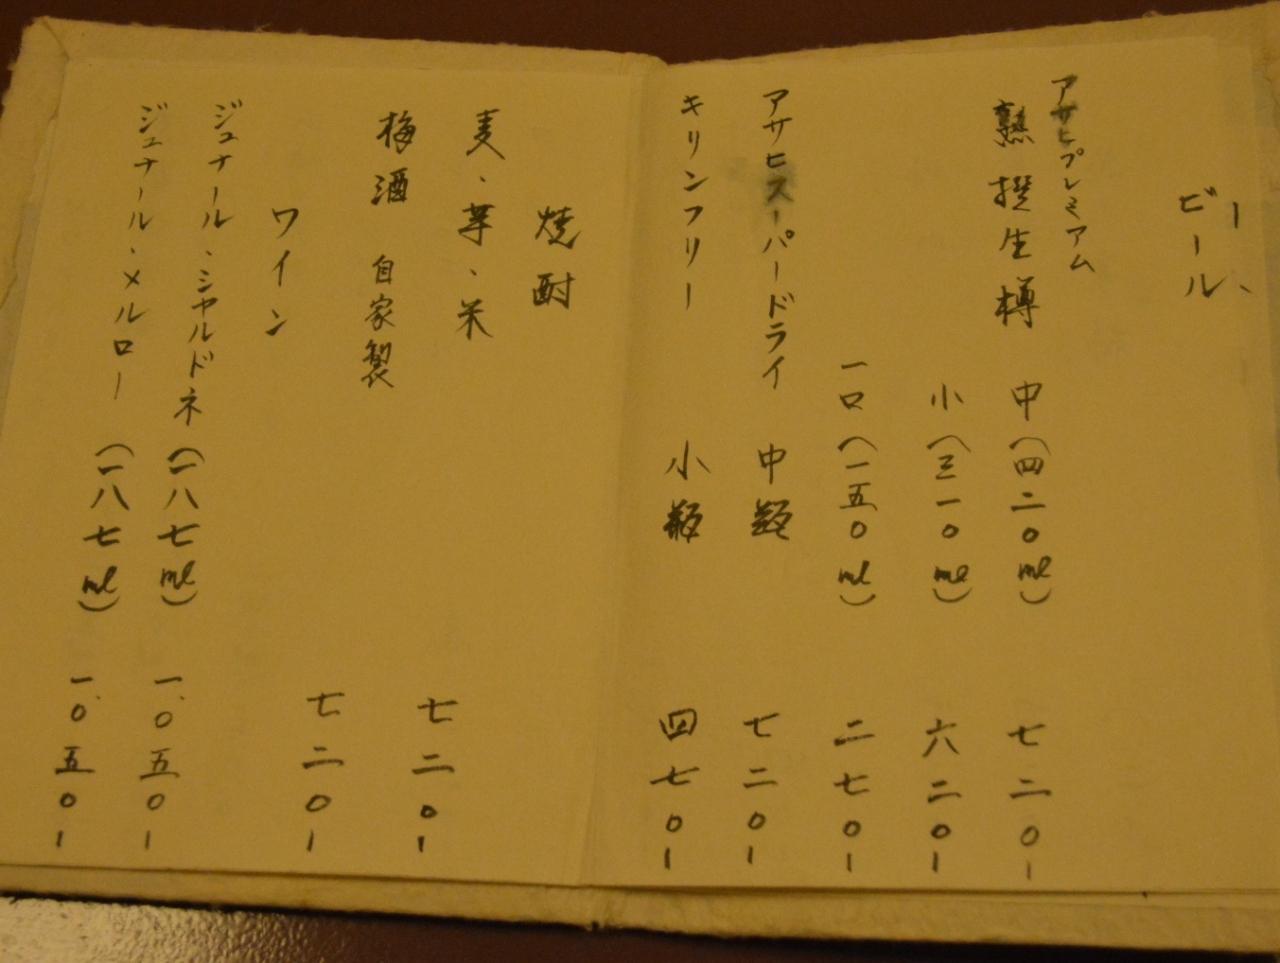 ビール
アサヒプレミアム
熟撰生樽 中(四二〇ml) 七二〇ー
小(三一〇ml) 六二〇ー
一口(一五〇ml) 二七〇ー
アサヒスーパードライ 中瓶 七二〇ー
キリンフリー 小瓶 四七〇ー
焼酎
麦、芋、米 七二〇ー
梅酒 自家製 七二〇ー
ワイン
ジュナール・シャルドネ(一八七ml) 一、〇五〇ー
ジュナール・メルロー(一八七ml) 一、〇五〇ー